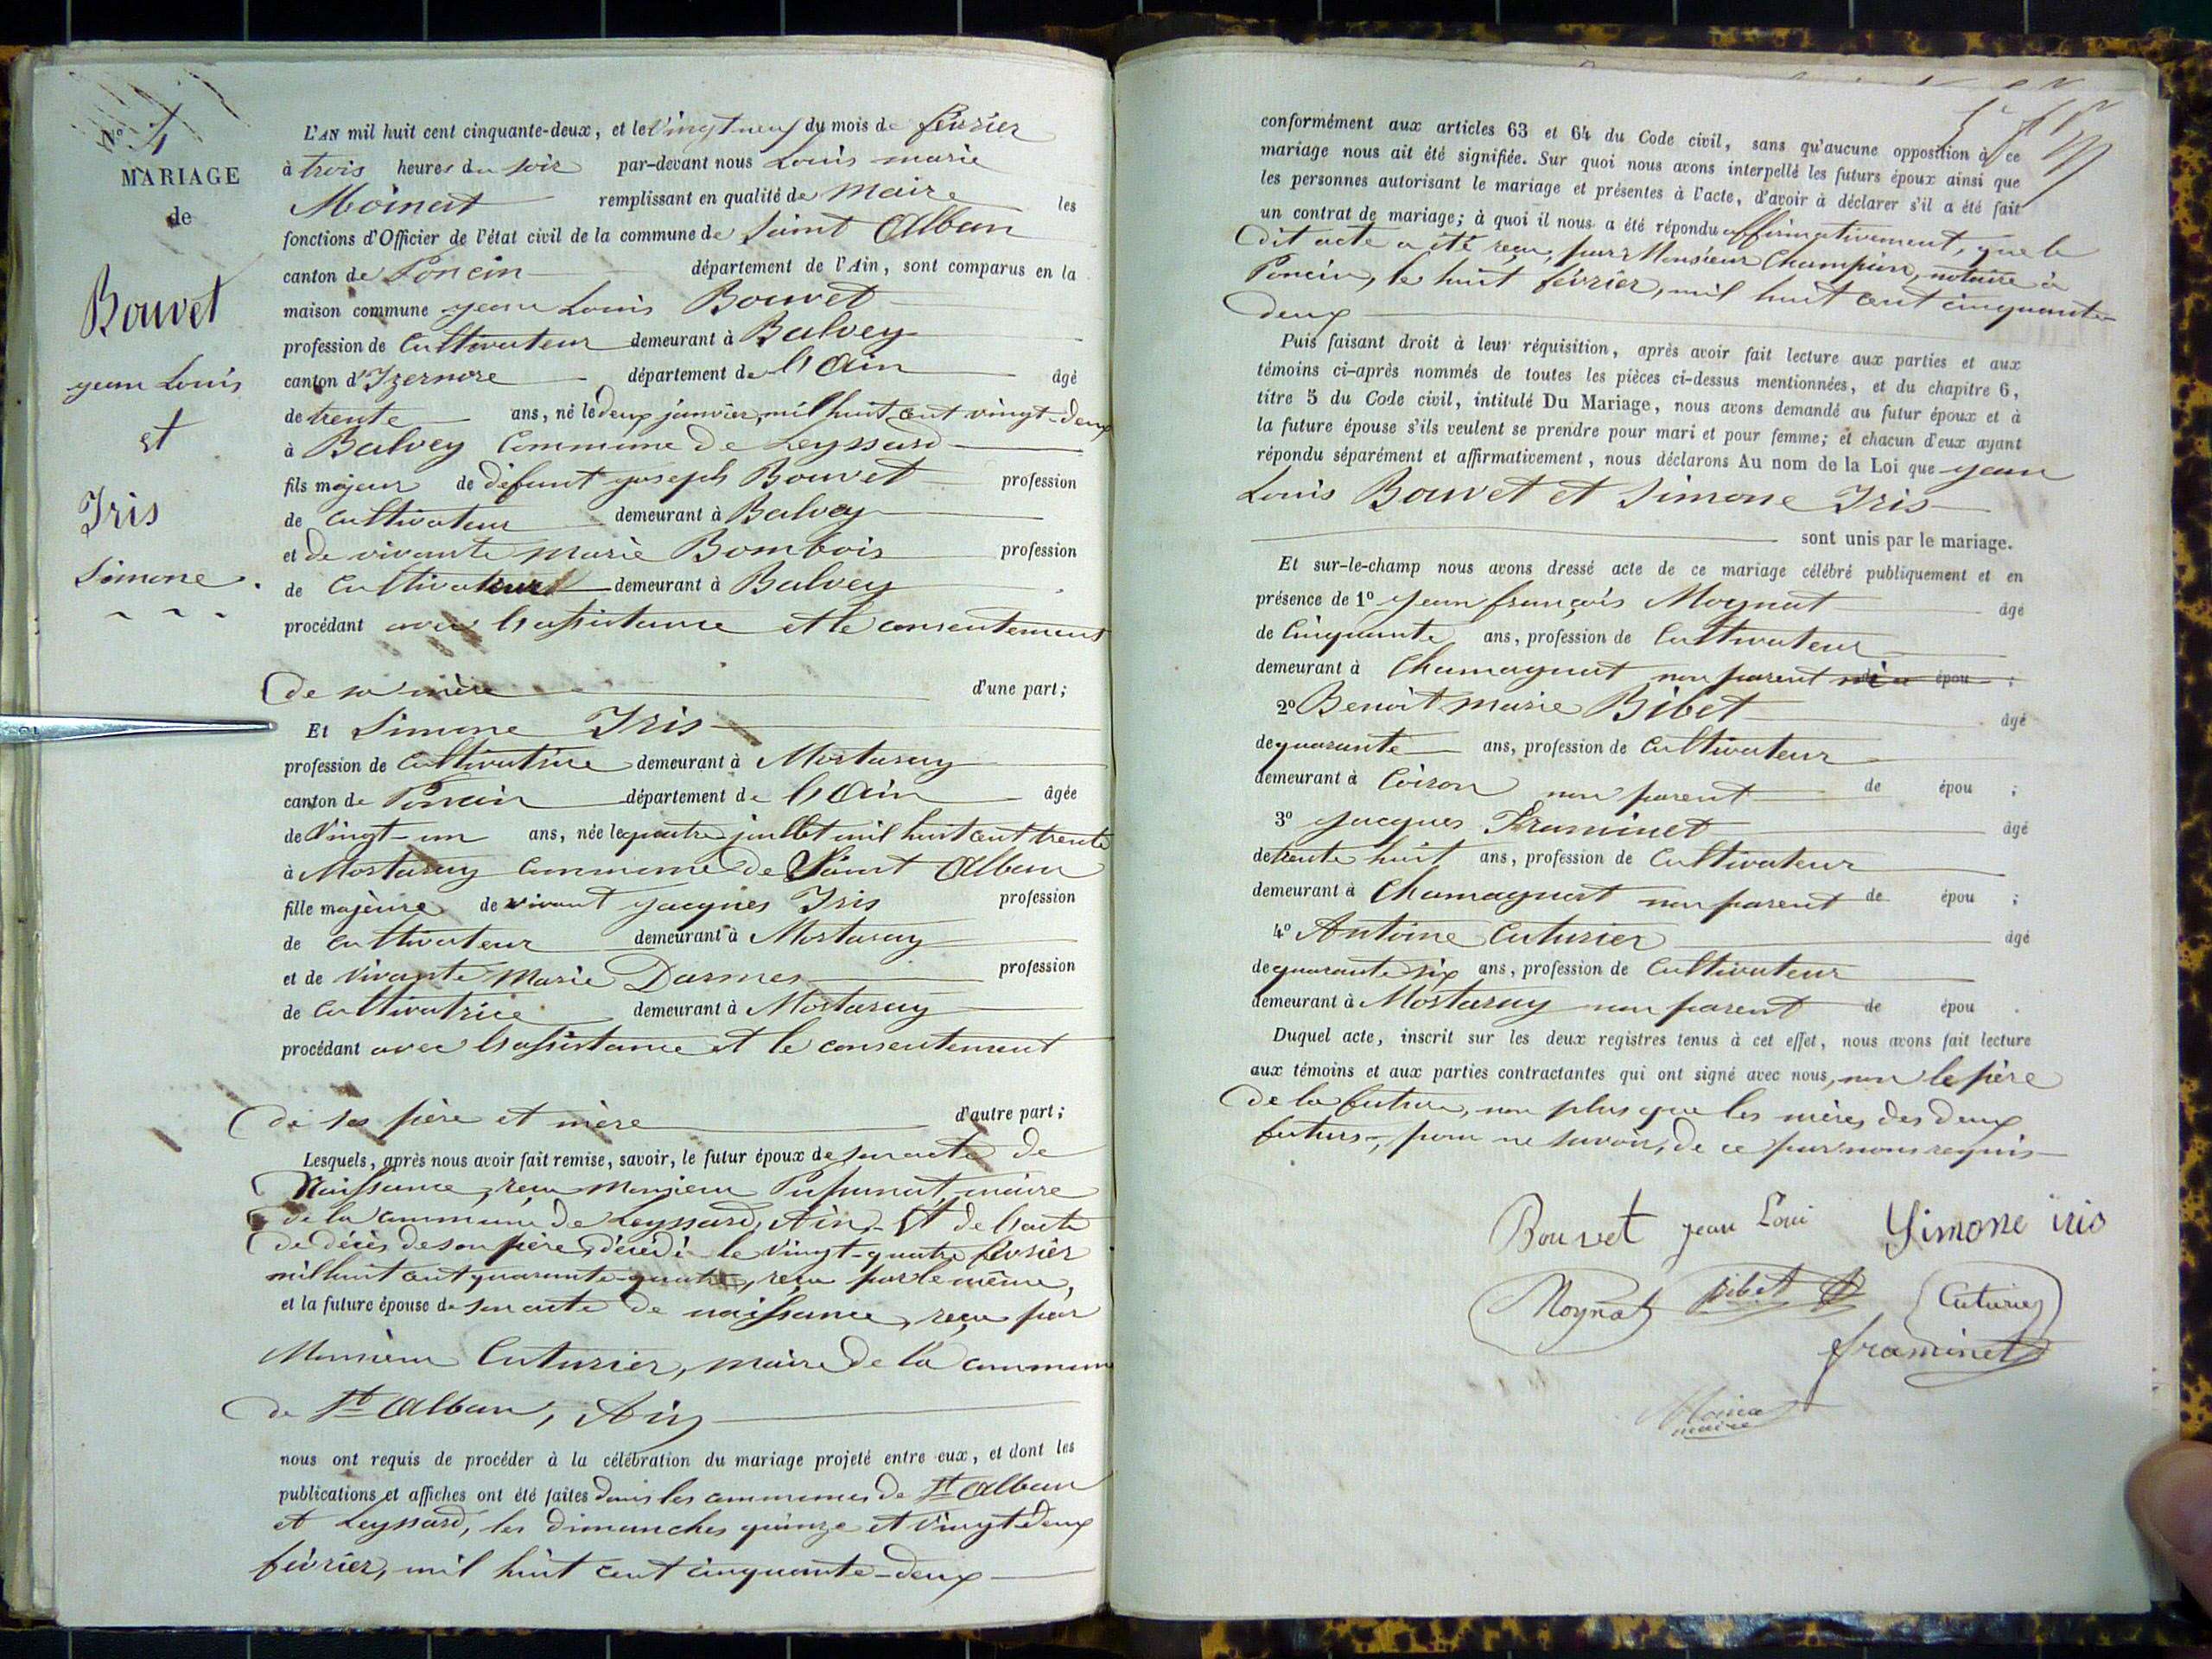 N° 4
MARIAGE
de
Bouvet
jean Louis
et
Iris
Simone
L'AN mil huit cent cinquante-deux, et le Vingt neuf du mois de février
à trois heures du soir par-devant nous Louis marie
Moinat remplissant en qualité de Maire les
fonctions d'Officier de l'état civil de la commune de Saint Alban
canton de Poncin département de l'Ain, sont comparus en la
maison commune jean Louis Bouvet
profession de Cultivateur demeurant à Balvey
canton d'Izernore département de l'Ain âgé
de trente ans, né le deux janvier mil huit cent vingt-deux
à Balvey Commune de Leyssard
fils majeur de défunt joseph Bouvet profession
de Cultivateur demeurant à Balvey
et de vivante marie Bombois profession
de Cultivateur demeurant à Balvey
procédant avec l'assistance et le consentement
de sa mère d'une part;
Et Simone Iris
profession de Cultivatrice demeurant à Mortaray
canton de Poncin département de l'Ain âgée
de Vingt-un ans, née le quatre juillet mil huit cent trente
à Mortaray Commune de Saint Alban
fille majeure de vivant jacques Iris profession
de Cultivateur demeurant à Mortaray
et de Vivante Marie Darmes profession
de Cultivatrice demeurant à Mortaray
procédant avec l'assistance et le consentement
de ses père et mère d'autre part;
Lesquels, après nous avoir fait remise, savoir, le futur époux de son acte de
Naissance, reçu Monsieur maire
de la commune de Leyssard, Ain, Et de l'acte
de décès de son père, décédé le vingt-quatre février
mil huit cent quarante-quatre, reçu par le même,
et la future épouse de son acte de naissance, reçu par
Monsieur Cuturier, maire de la commune
de St Alban, Ain
nous ont requis de procéder à la célébration du mariage projeté entre eux, et dont les
publications et affiches ont été faites dans les communes de St Alban
et Leyssard, les dimanches quinze et vingt deux
février, mil huit cent cinquante-deux
conformément aux articles 63 et 64 du Code civil, sans qu'aucune opposition à ce
mariage nous ait été signifiée. Sur quoi nous avons interpellé les futurs époux ainsi que
les personnes autorisant le mariage et présentes à l'acte, d'avoir à déclarer s'il a été fait
un contrat de mariage; à quoi il nous a été répondu affirmativement, que le
dit acte a été reçu, par Monsieur Champion, notaire à
Poncin, le huit février, mil huit cent cinquante-
deux
Puis faisant droit à leur réquisition, après avoir fait lecture aux parties et aux
témoins ci-après nommés de toutes les pièces ci-dessus mentionnées, et du chapitre 6,
titre 5 du Code civil, intitulé Du Mariage, nous avons demandé au futur époux et à
la future épouse s'ils veulent se prendre pour mari et pour femme; et chacun d'eux ayant
répondu séparément et affirmativement, nous déclarons Au nom de la Loi que jean
Louis Bouvet et Simone Iris
sont unis par le mariage.
Et sur-le-champ nous avons dressé acte de ce mariage célébré publiquement et en
présence de 1° jean françois Moynat âgé
de Cinquante ans, profession de Cultivateur
demeurant à Chamagnat non parent épou ;
2° Benoit marie Bibet âgé
de quarante ans, profession de Cultivateur
demeurant à Coiron non parent de épou ;
3° jacques Framinet âgé
de trente huit ans, profession de Cultivateur
demeurant à Chamagnat non parent de épou ;
4° Antoine Cuturier âgé
de quarante six ans, profession de Cultivateur
demeurant à Mortaray non parent de épou .
Duquel acte, inscrit sur les deux registres tenus à cet effet, nous avons fait lecture
aux témoins et aux parties contractantes qui ont signé avec nous, non le père
de la future, non plus que les mères des deux
futurs, pour ne savoir, de ce par nous requis
Bouvet jean Loui Simone iris
Moynat Bibet Cuturier
framinet
Moinat
maire